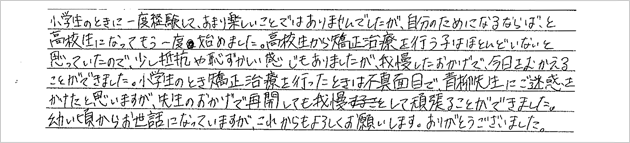 小学生のときに一度経験して、あまり楽しいことではありませんでしたが、自分のためになるならば、と
高校生になってもう一度始めました。高校生から矯正治療を行う子はほとんどいないと
思っていたので、少し抵抗や恥ずかしい感じもありましたが、我慢したおかげで、今日をむかえる
ことができました。小学生のとき矯正治療を行ったときは不真面目で、青柳先生にご迷惑を
かけたと思いますが、先生のおかげで再開しても我慢して頑張ることができました。
幼い頃からお世話になっていますが、これからもよろしくお願いします。ありがとうございました。